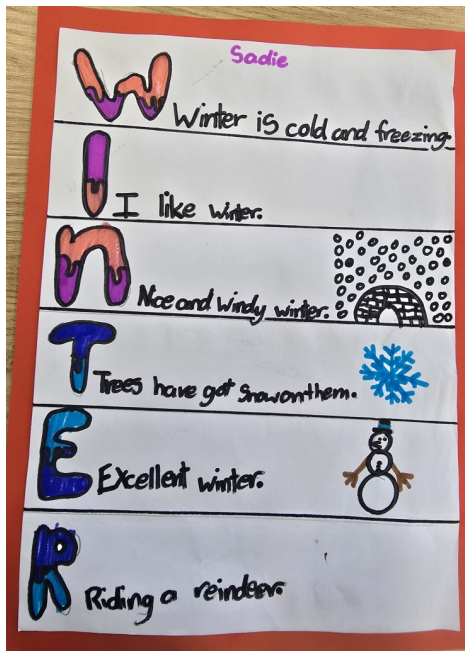 Sadie
W Winter is cold and freezing.
I I like winter.
n Nice and windy winter.
T Trees have got snow on them.
E Excellent winter.
R Riding a reindeer.